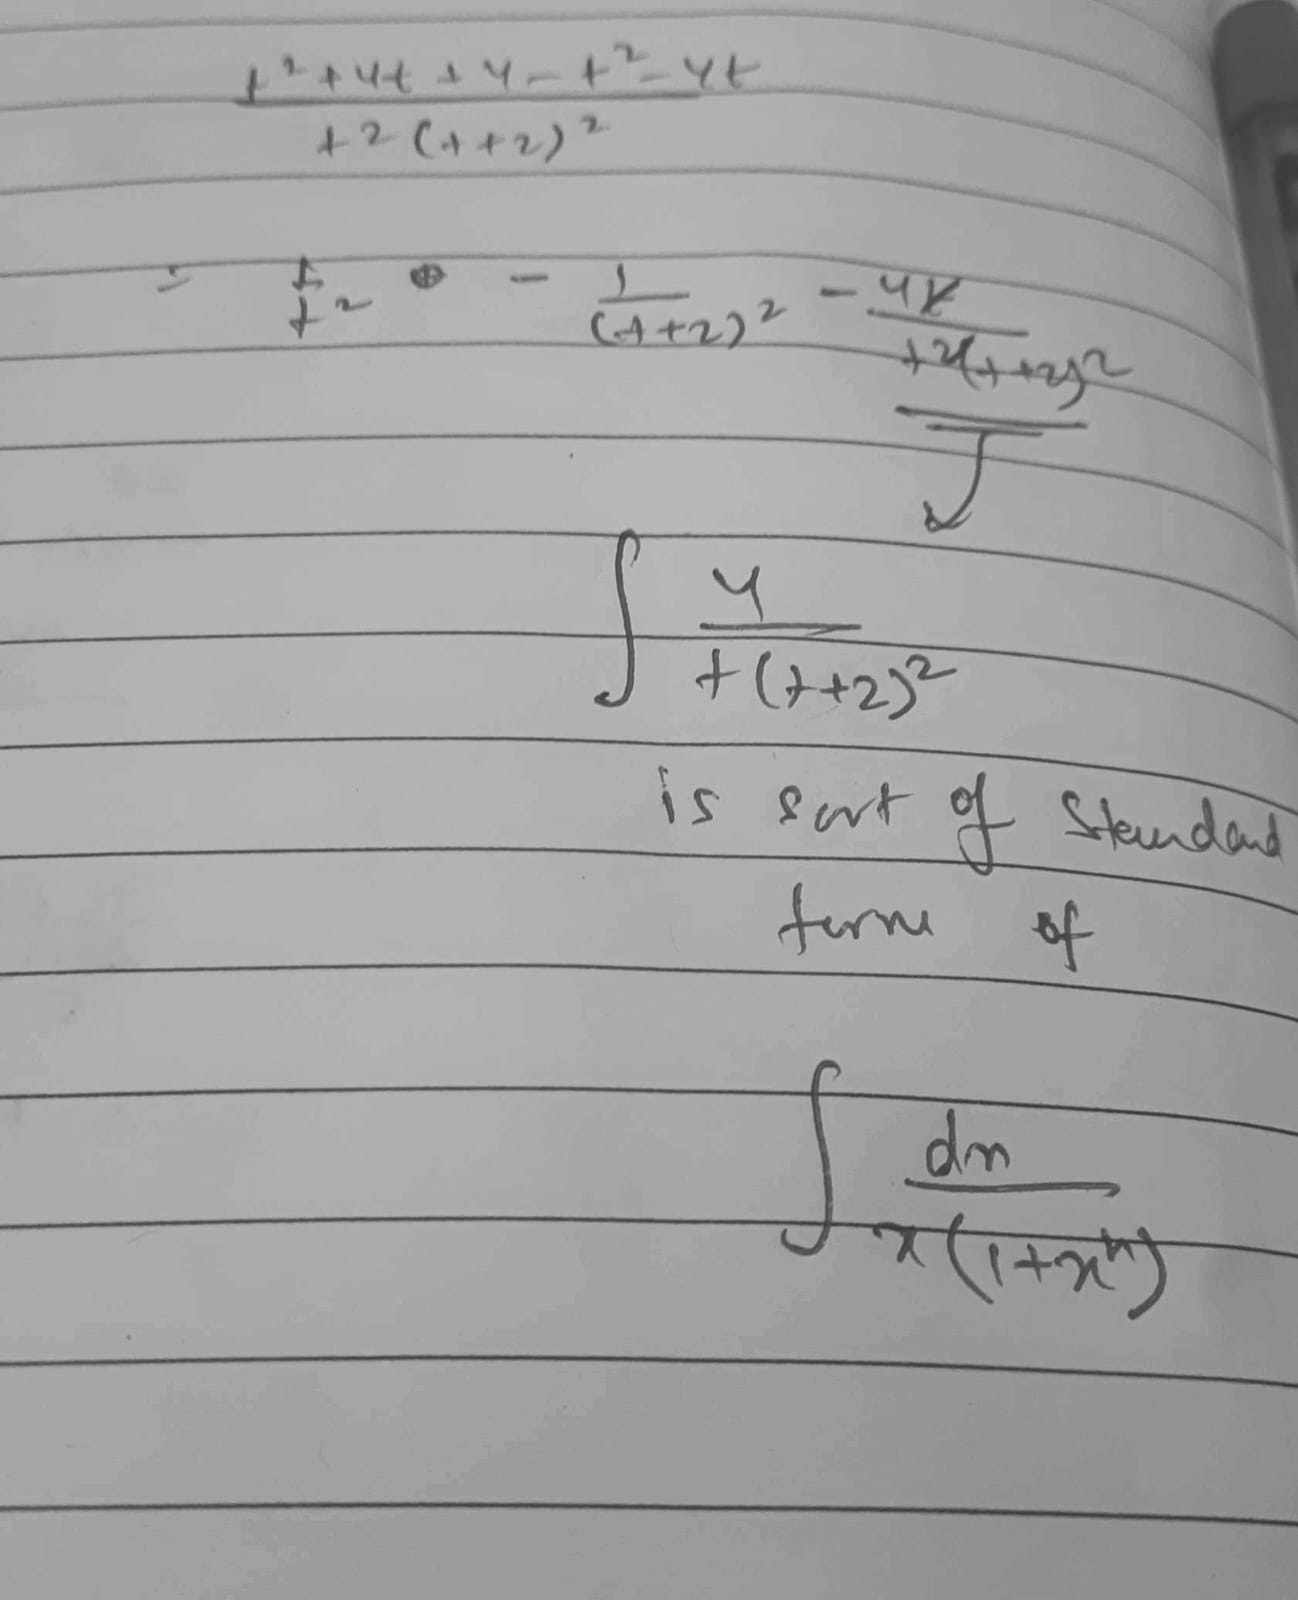 t² + 4t + 4 - t² - 4t
t² (t+2)²
= 1/t² - 1/(t+2)² - 4t/t²(t+2)²
∫ 4/t(t+2)²
is sort of standard
form of
∫ dx/x(1+xⁿ)